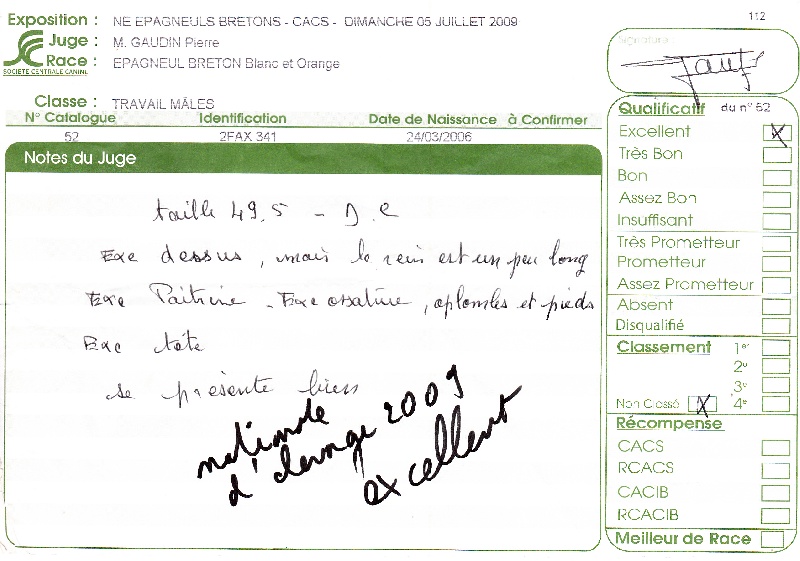 112
Exposition : NE EPAGNEULS BRETONS - CACS - DIMANCHE 05 JUILLET 2009
Juge : M. GAUDIN Pierre
Race : EPAGNEUL BRETON Blanc et Orange
SOCIÉTÉ CENTRALE CANINE
Classe : TRAVAIL MÂLES
N° Catalogue Identification Date de Naissance à Confirmer
52 2FAX 341 24/03/2006
Notes du Juge
taille 49.5 - D.C
Exc dessus, mais le rein est un peu long
Exc Poitrine - Exc ossature, aplombs et pieds
Exc tête
se présente bien
nationale
d' 2009
excellent
Signature
Qualificatif du n° 52
Excellent X
Très Bon
Bon
Assez Bon
Insuffisant
Très Prometteur
Prometteur
Assez Prometteur
Absent
Disqualifié
Classement 1er
2e
3e
Non Classé X 4e
Récompense
CACS
RCACS
CACIB
RCACIB
Meilleur de Race